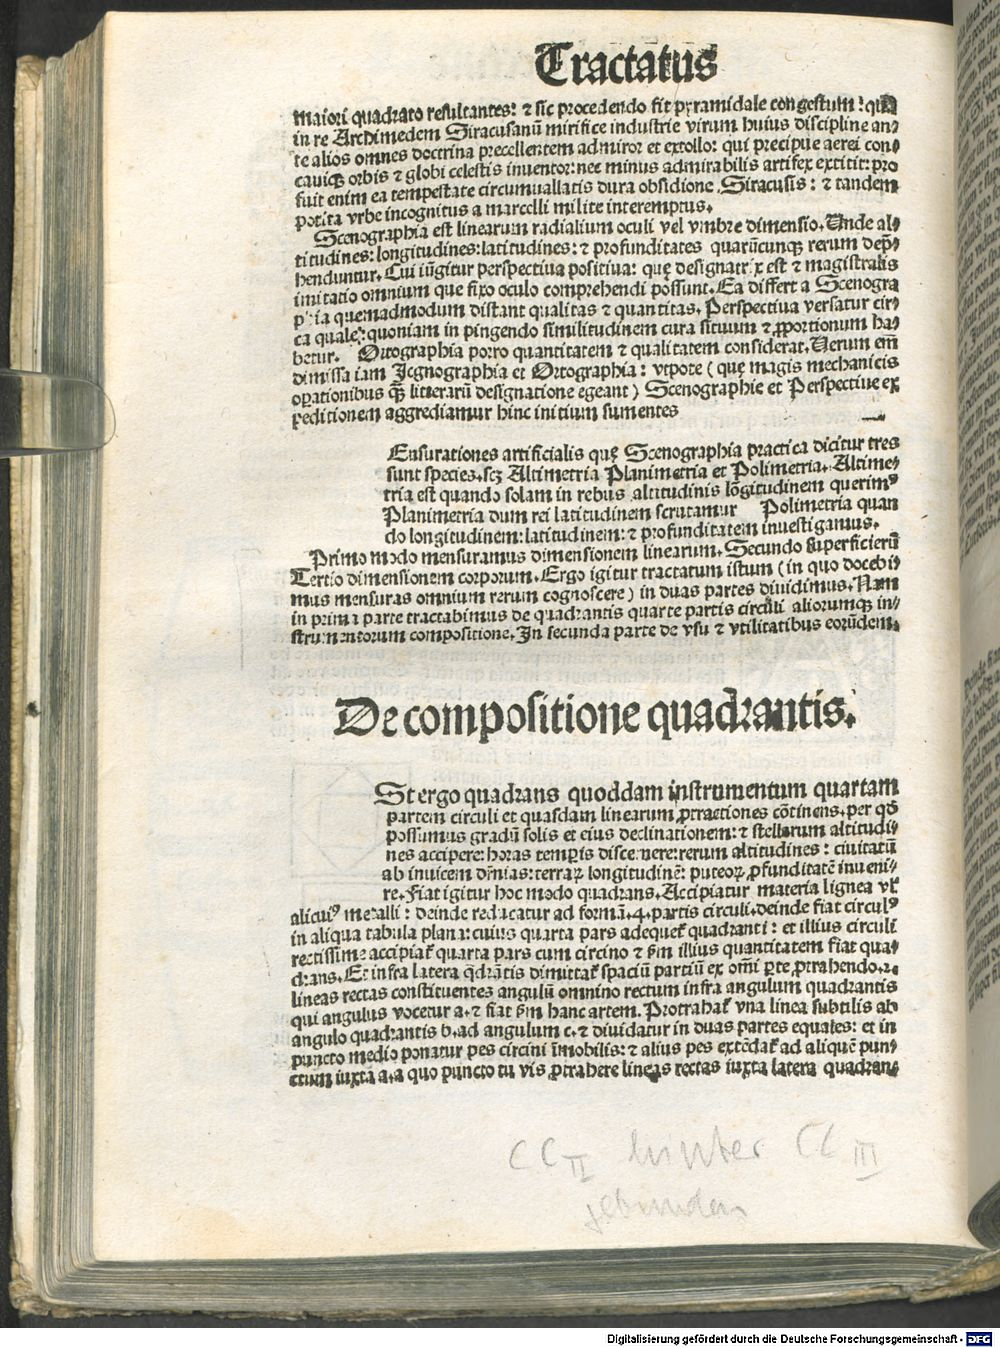 Tractatus
maiori quadrato resultantes: ⁊ sic procedendo fit pyramidale congestum: qua
in re Archimedem Siracusanū mirifice industrie virum huius discipline an⸗
te alios omnes doctrina precellentem admiror et extollo: qui precipue aerei con⸗
cauiqȝ orbis ⁊ globi celestis inuentor: nec minus admirabilis artifex extitit: pro
fuit enim ea tempestate circumuallatis dura obsidione Siracusis: ⁊ tandem
potita vrbe incognitus a marcelli milite interemptus.
Scenographia est linearum radialium oculi vel vmbre dimensio. Unde al⸗
titudines: longitudines: latitudines: ⁊ profunditates quarūcunqȝ rerum dep̄⸗
henduntur. Cui iūgitur perspectiua positiua: quę designatrix est ⁊ magistralis
imitatio omnium que fixo oculo comprehendi possunt. Ea differt a Scenogra
phia quemadmodum distant qualitas ⁊ quantitas. Perspectiua versatur cir⸗
ca quale: quoniam in pingendo similitudinem cura situum ⁊ ꝓportionum ha⸗
betur. Ortographia porro quantitatem ⁊ qualitatem considerat. Uerum em̄
dimissa iam Icgnographia et Ortographia: vtpote (quę magis mechanicis
oꝑationibus qȝ litterarū designatione egeant) Scenographie et Perspectiue ex
peditionem aggrediamur hinc initium sumentes
Ensurationes artificialis quę Scenographia practica dicitur tres
sunt species. scȝ Altimetria Planimetria et Polimetria. Altime⸗
tria est quando solam in rebus altitudinis lōgitudinem querimꝰ
Planimetria dum rei latitudinem scrutamur Polimetria quan
do longitudinem: latitudinem: ⁊ profunditatem inuestigamus.
Primo modo mensuramus dimensionem linearum. Secundo superficierū
Tertio dimensionem corporum. Ergo igitur tractatum istum (in quo docebi
mus mensuras omnium rerum cognoscere) in duas partes diuidimus. Nam
in prima parte tractabimus de quadrantis quarte partis circuli aliorumqȝ in⸗
strumentorum compositione. In secunda parte de vsu ⁊ vtilitatibus eorūdem.
De compositione quadrantis.
St ergo quadrans quoddam instrumentum quartam
partem circuli et quasdam linearum ꝓtractiones cōtinens. per qd̄
possumus gradū solis et eius declinationem: ⁊ stellarum altitudi⸗
nes accipere: horas temꝑis discernere: rerum altitudines: ciuitatū
ab inuicem dn̄ias: terraꝝ longitudinē: puteoꝝ ꝓfunditatē inueni⸗
re. Fiat igitur hoc modo quadrans. Accipiatur materia lignea vl̄
alicuiꝰ metalli: deinde reducatur ad formā .4. partis circuli. deinde fiat circulꝰ
in aliqua tabula plana: cuius quarta pars adequet̄ quadranti: et illius circuli
rectissime accipiat̄ quarta pars cum circino et ẜm illius quantitatem fiat qua⸗
drans. Et infra latera qdrātis dimittat̄ spaciū partiū ex om̄i ꝑte ꝓtrahendo .2.
lineas rectas constituentes angulū omnino rectum infra angulum quadrantis
qui angulus vocetur a. ⁊ fiat ẜm hanc artem. Protrahat̄ vna linea subtilis ab
angulo quadrantis b. ad angulum c. ⁊ diuidatur in duas partes equales: et in
puncto medio ponatur pes circini īmobilis: ⁊ alius pes extēdat̄ ad aliquē pun⸗
ctum iuxta a. a quo puncto tu vis ꝓtrahere lineas rectas iuxta latera quadran⸗
CC II hinter CC III
gebunden
Digitalisierung gefördert durch die Deutsche Forschungsgemeinschaft - DFG